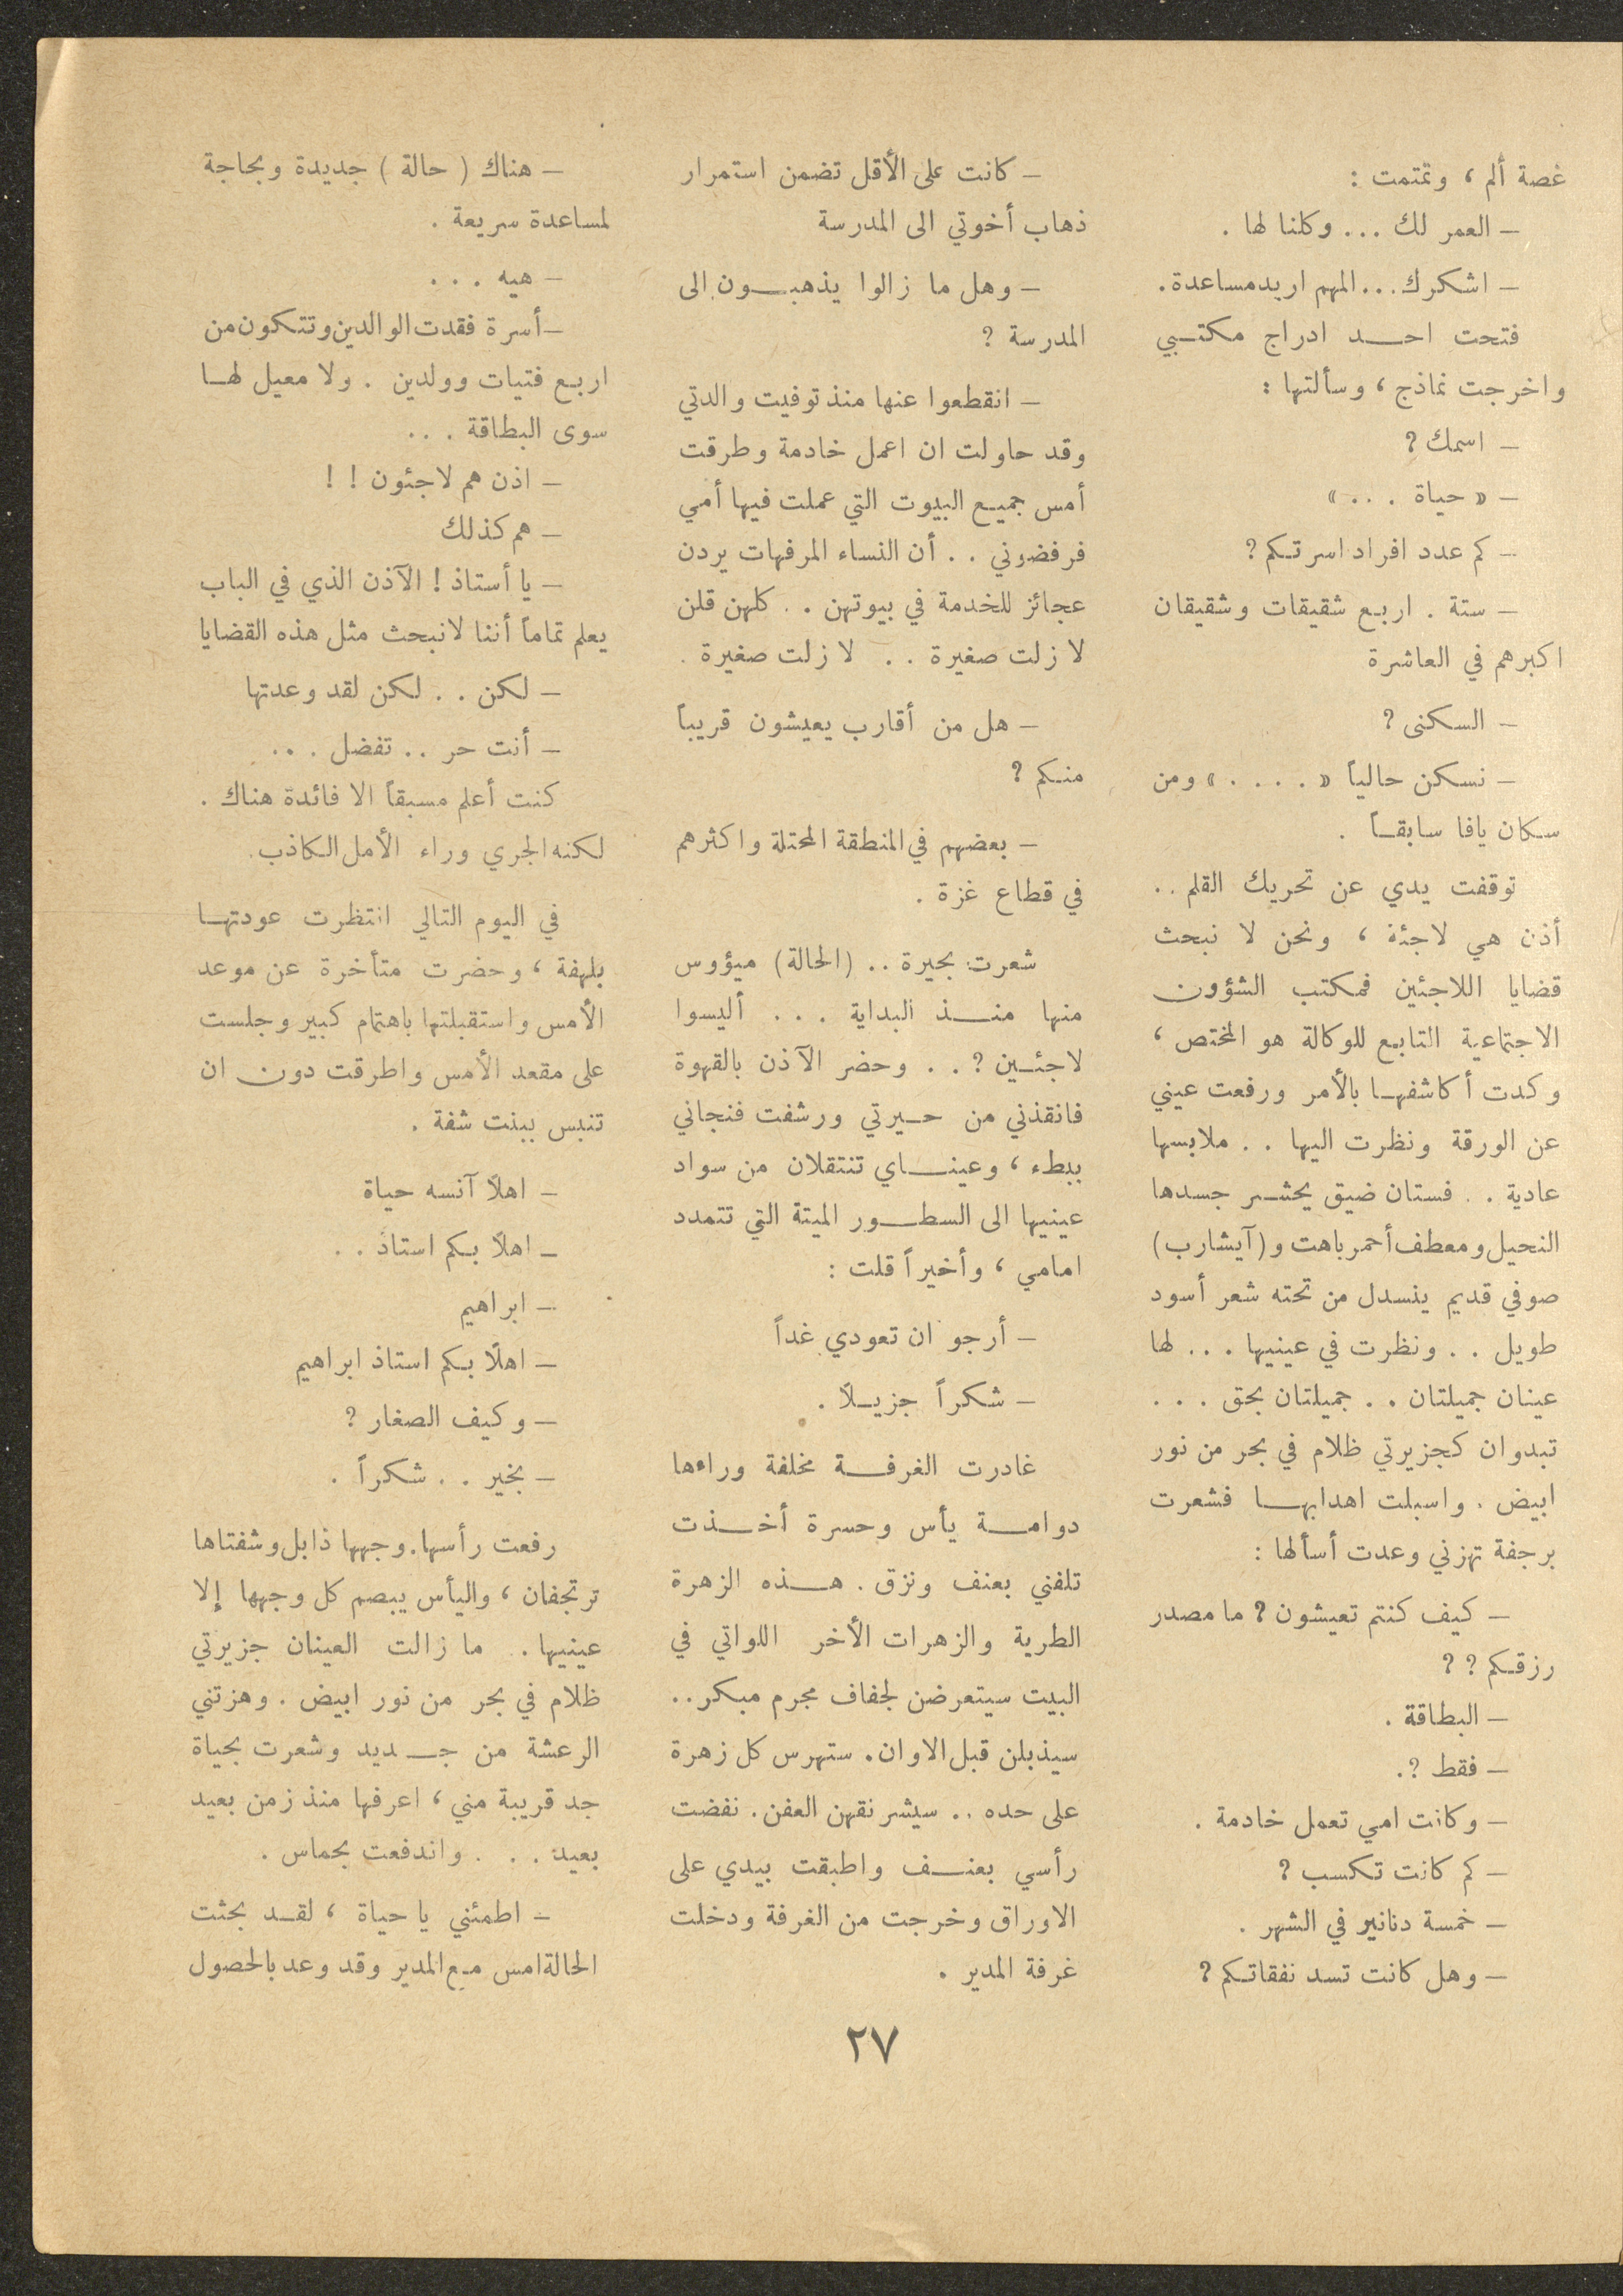 غصة ألم ، وتمتمت :
– العمر لك ... وكلنا لها .
– اشكرك ... المهم اريد مساعدة .
فتحت احد ادراج مكتبي
واخرجت نماذج ، وسألتها :
– اسمك ؟
– « حياة . . . »
– كم عدد افراد اسرتكم ؟
– ستة . اربع شقيقات وشقيقان
اكبرهم في العاشرة
– السكنى ؟
– نسكن حالياً « . . . . » ومن
سكان يافا سابقاً .
توقفت يدي عن تحريك القلم . .
أذن هي لاجئة ، ونحن لا نبحث
قضايا اللاجئين فمكتب الشؤون
الاجتماعية التابع للوكالة هو المختص ،
وكدت أكاشفها بالأمر ورفعت عيني
عن الورقة ونظرت اليها . . ملابسها
عادية . . فستان ضيق يحشر جسدها
النحيل ومعطف أحمر باهت و (آيشارب)
صوفي قديم ينسدل من تحته شعر أسود
طويل . . ونظرت في عينيها ... لها
عينان جميلتان . . جميلتان بحق . . .
تبدوان كجزيرتي ظلام في بحر من نور
ابيض . واسبلت اهدابها فشعرت
برجفة تهزني وعدت أسألها :
– كيف كنتم تعيشون ؟ ما مصدر
رزقكم ؟ ؟
– البطاقة .
– فقط ؟.
– وكانت امي تعمل خادمة .
– كم كانت تكسب ؟
– خمسة دنانير في الشهر .
– وهل كانت تسد نفقاتكم ؟
– كانت على الأقل تضمن استمرار
ذهاب أخوتي الى المدرسة
– وهل ما زالوا يذهبون الى
المدرسة ؟
– انقطعوا عنها منذ توفيت والدتي
وقد حاولت ان اعمل خادمة وطرقت
أمس جميع البيوت التي عملت فيها أمي
فرفضوني . . أن النساء المرفهات يردن
عجائز للخدمة في بيوتهن . . كلهن قلن
لا زلت صغيرة . . لا زلت صغيرة .
– هل من أقارب يعيشون قريباً
منكم ؟
– بعضهم في المنطقة المحتلة واكثرهم
في قطاع غزة .
شعرت بحيرة . . (الحالة) ميؤوس
منها منذ البداية . . . أليسوا
لاجئين ؟ . . وحضر الآذن بالقهوة
فانقذني من حيرتي ورشفت فنجاني
ببطء ، وعيناي تنتقلان من سواد
عينيها الى السطور الميتة التي تتمدد
امامي ، وأخيراً قلت :
– أرجو ان تعودي غداً
– شكراً جزيلاً .
غادرت الغرفة مخلفة وراءها
دوامة يأس وحسرة أخذت
تلفني بعنف ونزق . هذه الزهرة
الطرية والزهرات الأخر اللواتي في
البيت سيتعرضن لجفاف مجرم مبكر . .
سيذبلن قبل الاوان . ستهرس كل زهرة
على حده . . سيشرنقهن العفن . نفضت
رأسي بعنف واطبقت بيدي على
الاوراق وخرجت من الغرفة ودخلت
غرفة المدير .
– هناك ( حالة ) جديدة وبحاجة
لمساعدة سريعة .
– هيه . . .
– أسرة فقدت الوالدين وتتكون من
اربع فتيات وولدين . ولا معيل لها
سوى البطاقة . . .
– اذن هم لاجئون ! !
– هم كذلك
– يا أستاذ ! الآذن الذي في الباب
يعلم تماماً أننا لا نبحث مثل هذه القضايا
– لكن . . لكن لقد وعدتها
– أنت حر . . تفضل . . .
كنت أعلم مسبقاً الا فائدة هناك .
لكنه الجري وراء الأمل الكاذب .
في اليوم التالي انتظرت عودتها
بلهفة ، وحضرت متأخرة عن موعد
الأمس واستقبلتها باهتمام كبير وجلست
على مقعد الأمس واطرقت دون ان
تنبس ببنت شفة .
– اهلاً آنسه حياة
– اهلاً بكم استاذ . .
– ابراهيم
– اهلاً بكم استاذ ابراهيم
– وكيف الصغار ؟
– بخير . . شكراً .
رفعت رأسها . وجهها ذابل وشفتاها
ترتجفان ، واليأس يبصم كل وجهها إلا
عينيها . ما زالت العينان جزيرتي
ظلام في بحر من نور ابيض . وهزتني
الرعشة من جديد وشعرت بحياة
جد قريبة مني ، اعرفها منذ زمن بعيد
بعيد . . . واندفعت بحماس .
– اطمئني يا حياة ، لقد بحثت
الحالة امس مع المدير وقد وعد بالحصول
٢٧